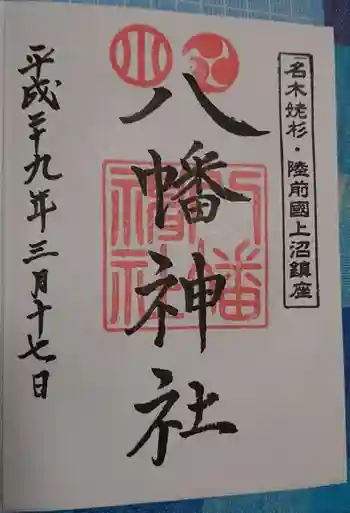 名木姥杉・陸前國上沼鎮座
八幡神社
平成二十九年三月十七日